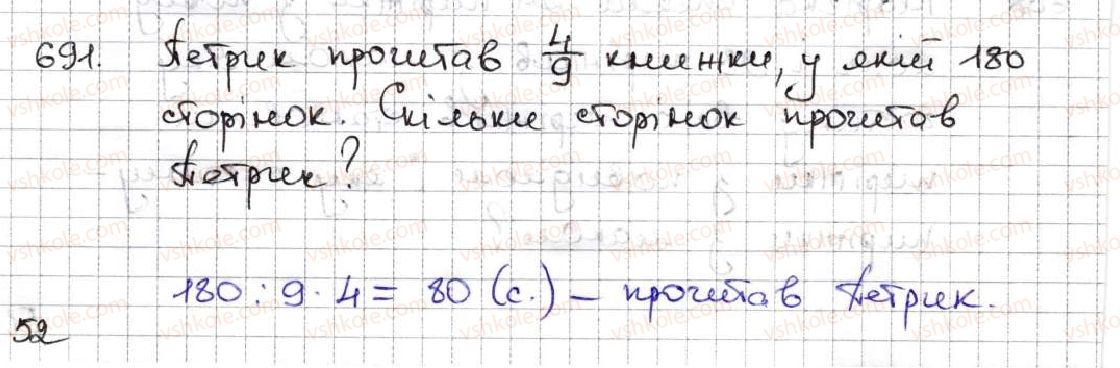 691. Петрик прочитав 4/9 книжки, у якій 180
сторінок. Скільки сторінок прочитав
Петрик?
180 : 9 · 4 = 80 (с.) – прочитав Петрик.
52